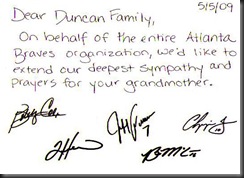 5/5/09
Dear Duncan Family,
On behalf of the entire Atlanta
Braves organization, we'd like to
extend our deepest sympathy and
prayers for your grandmother.
7